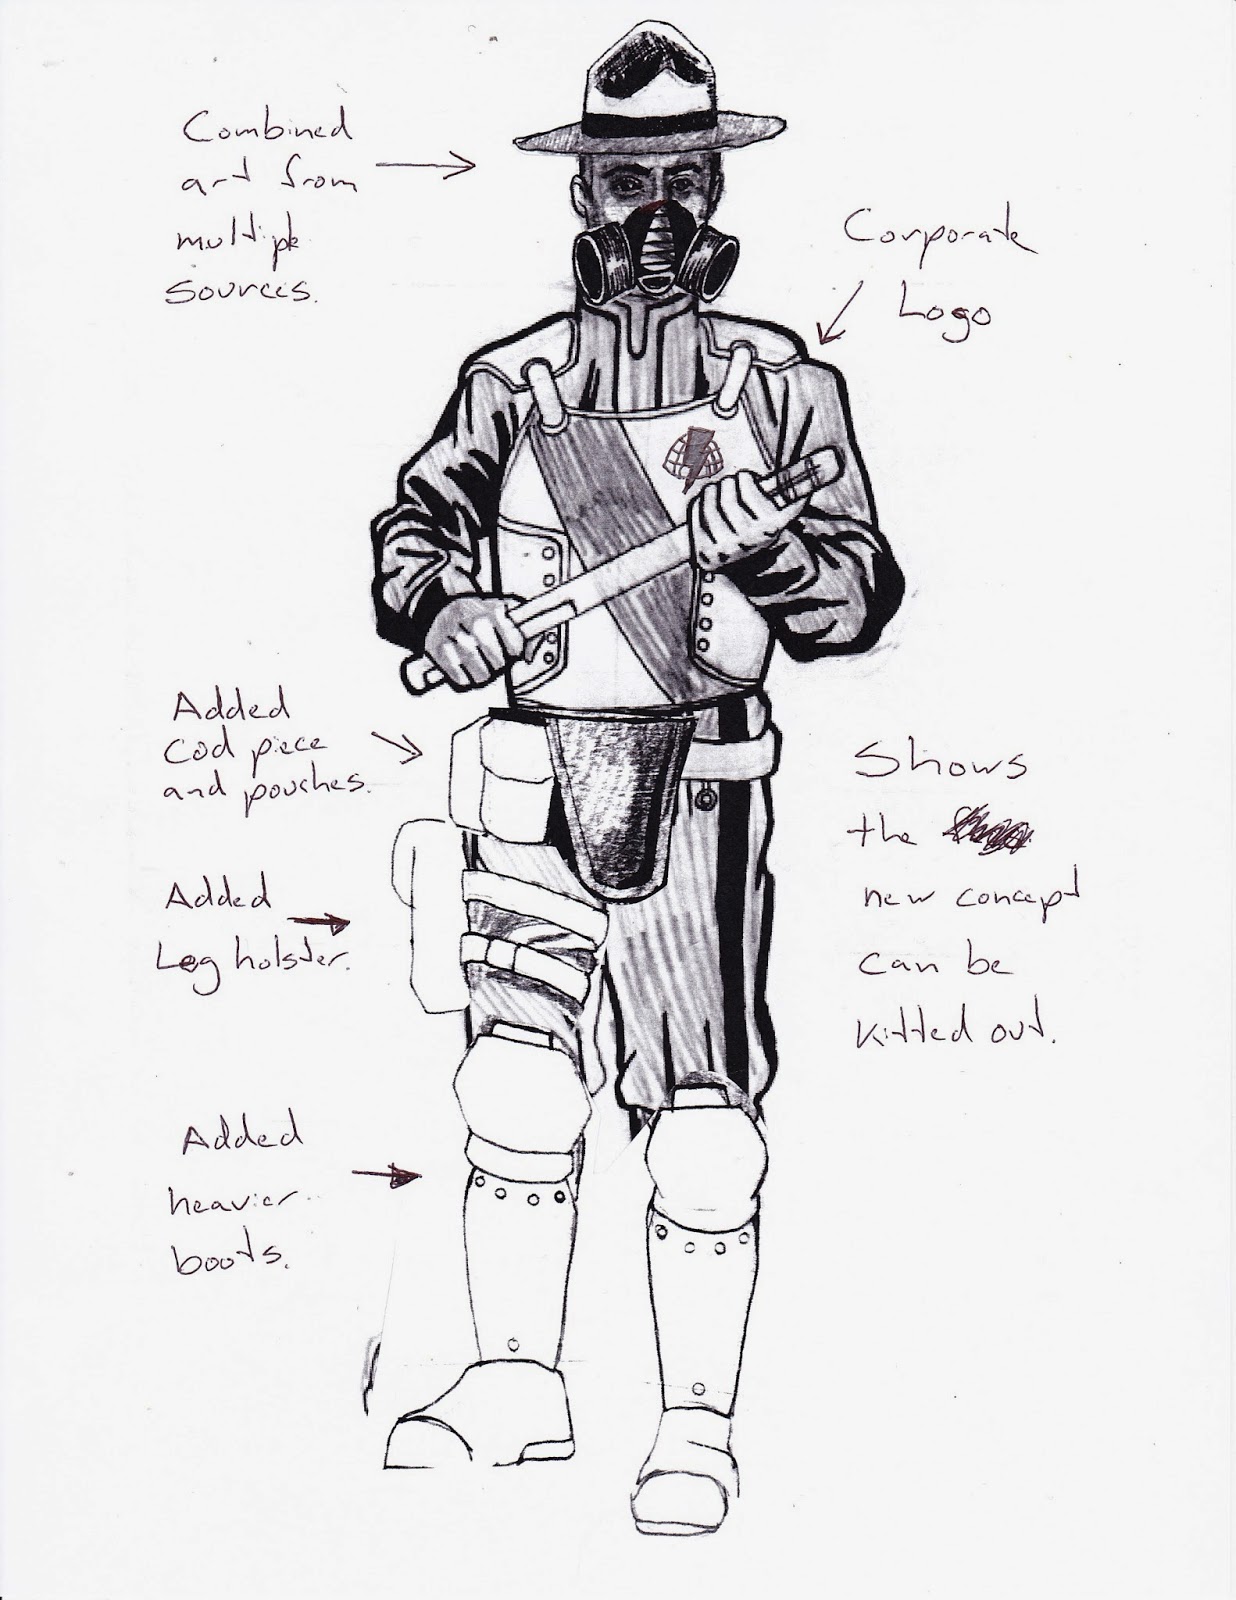 Combined
art from
multiple
sources.
Corporate
Logo
Added
Cod piece
and pouches.
Shows
the
new concept
can be
kitted out.
Added
Leg holster.
Added
heavier
boots.